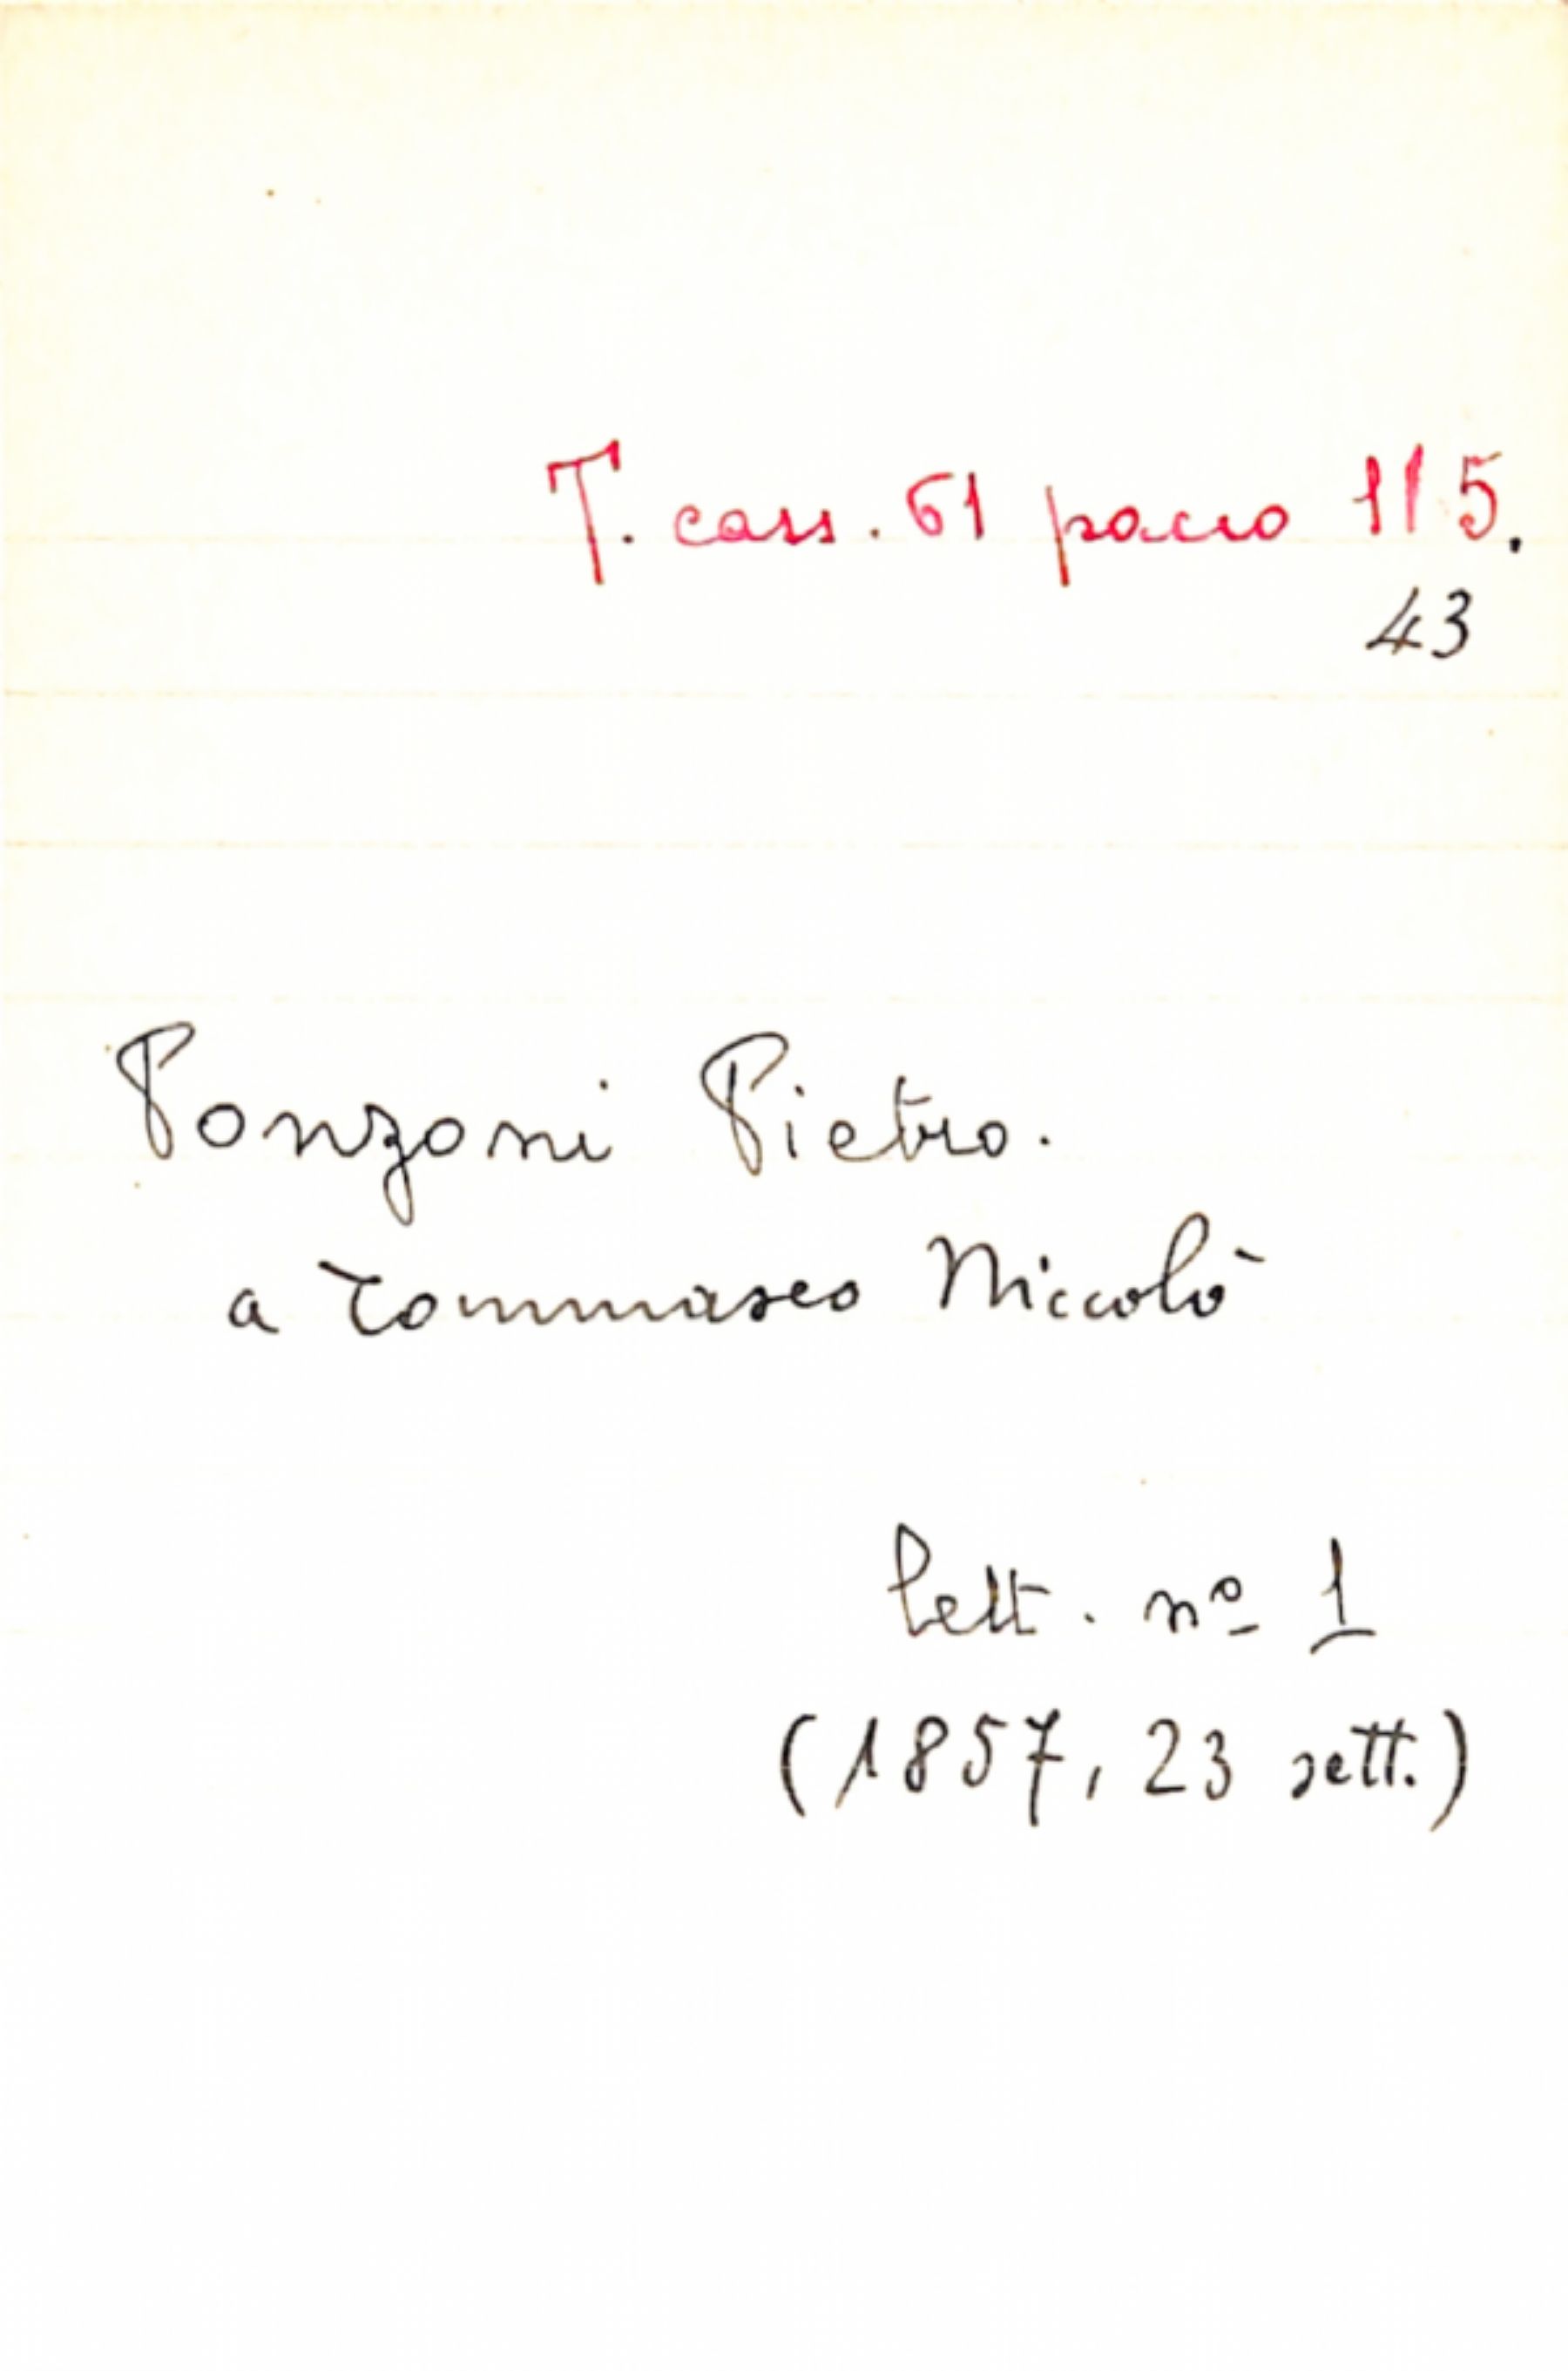 T. cass. 61 pacco 115.
43
Ponzoni Pietro.
a Tommaseo Niccolò
lett. nº 1
(1857, 23 sett.)